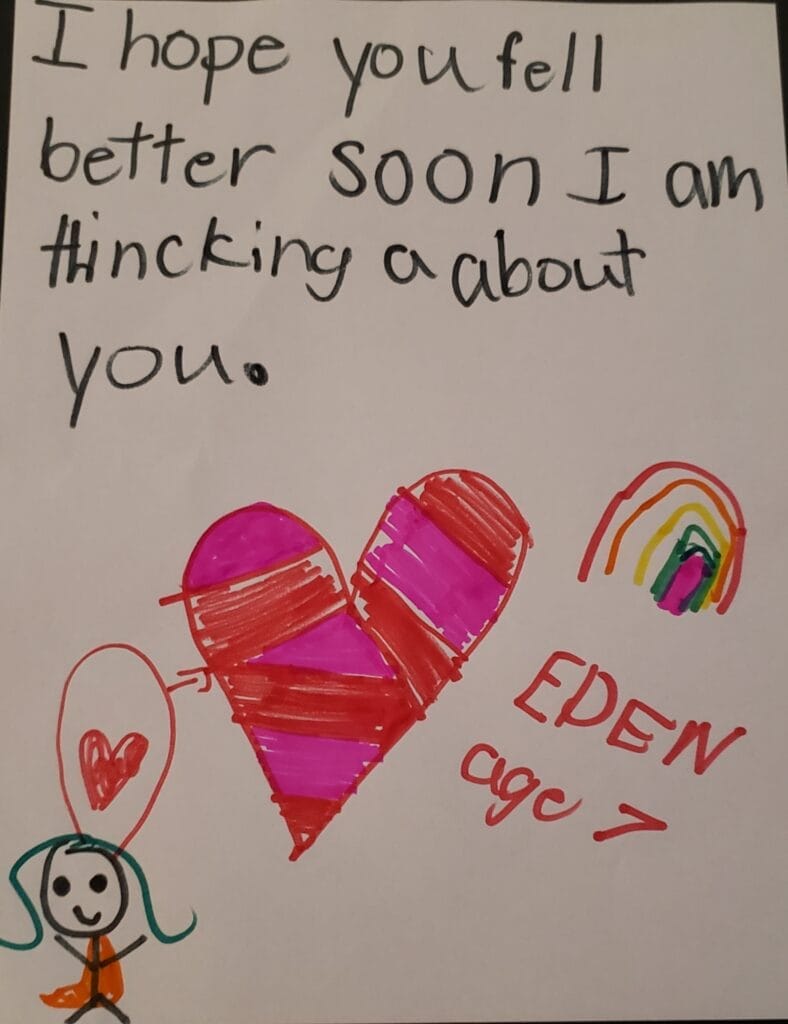 I hope you fell
better soon I am
thincking a about
you.
EDEN
age 7